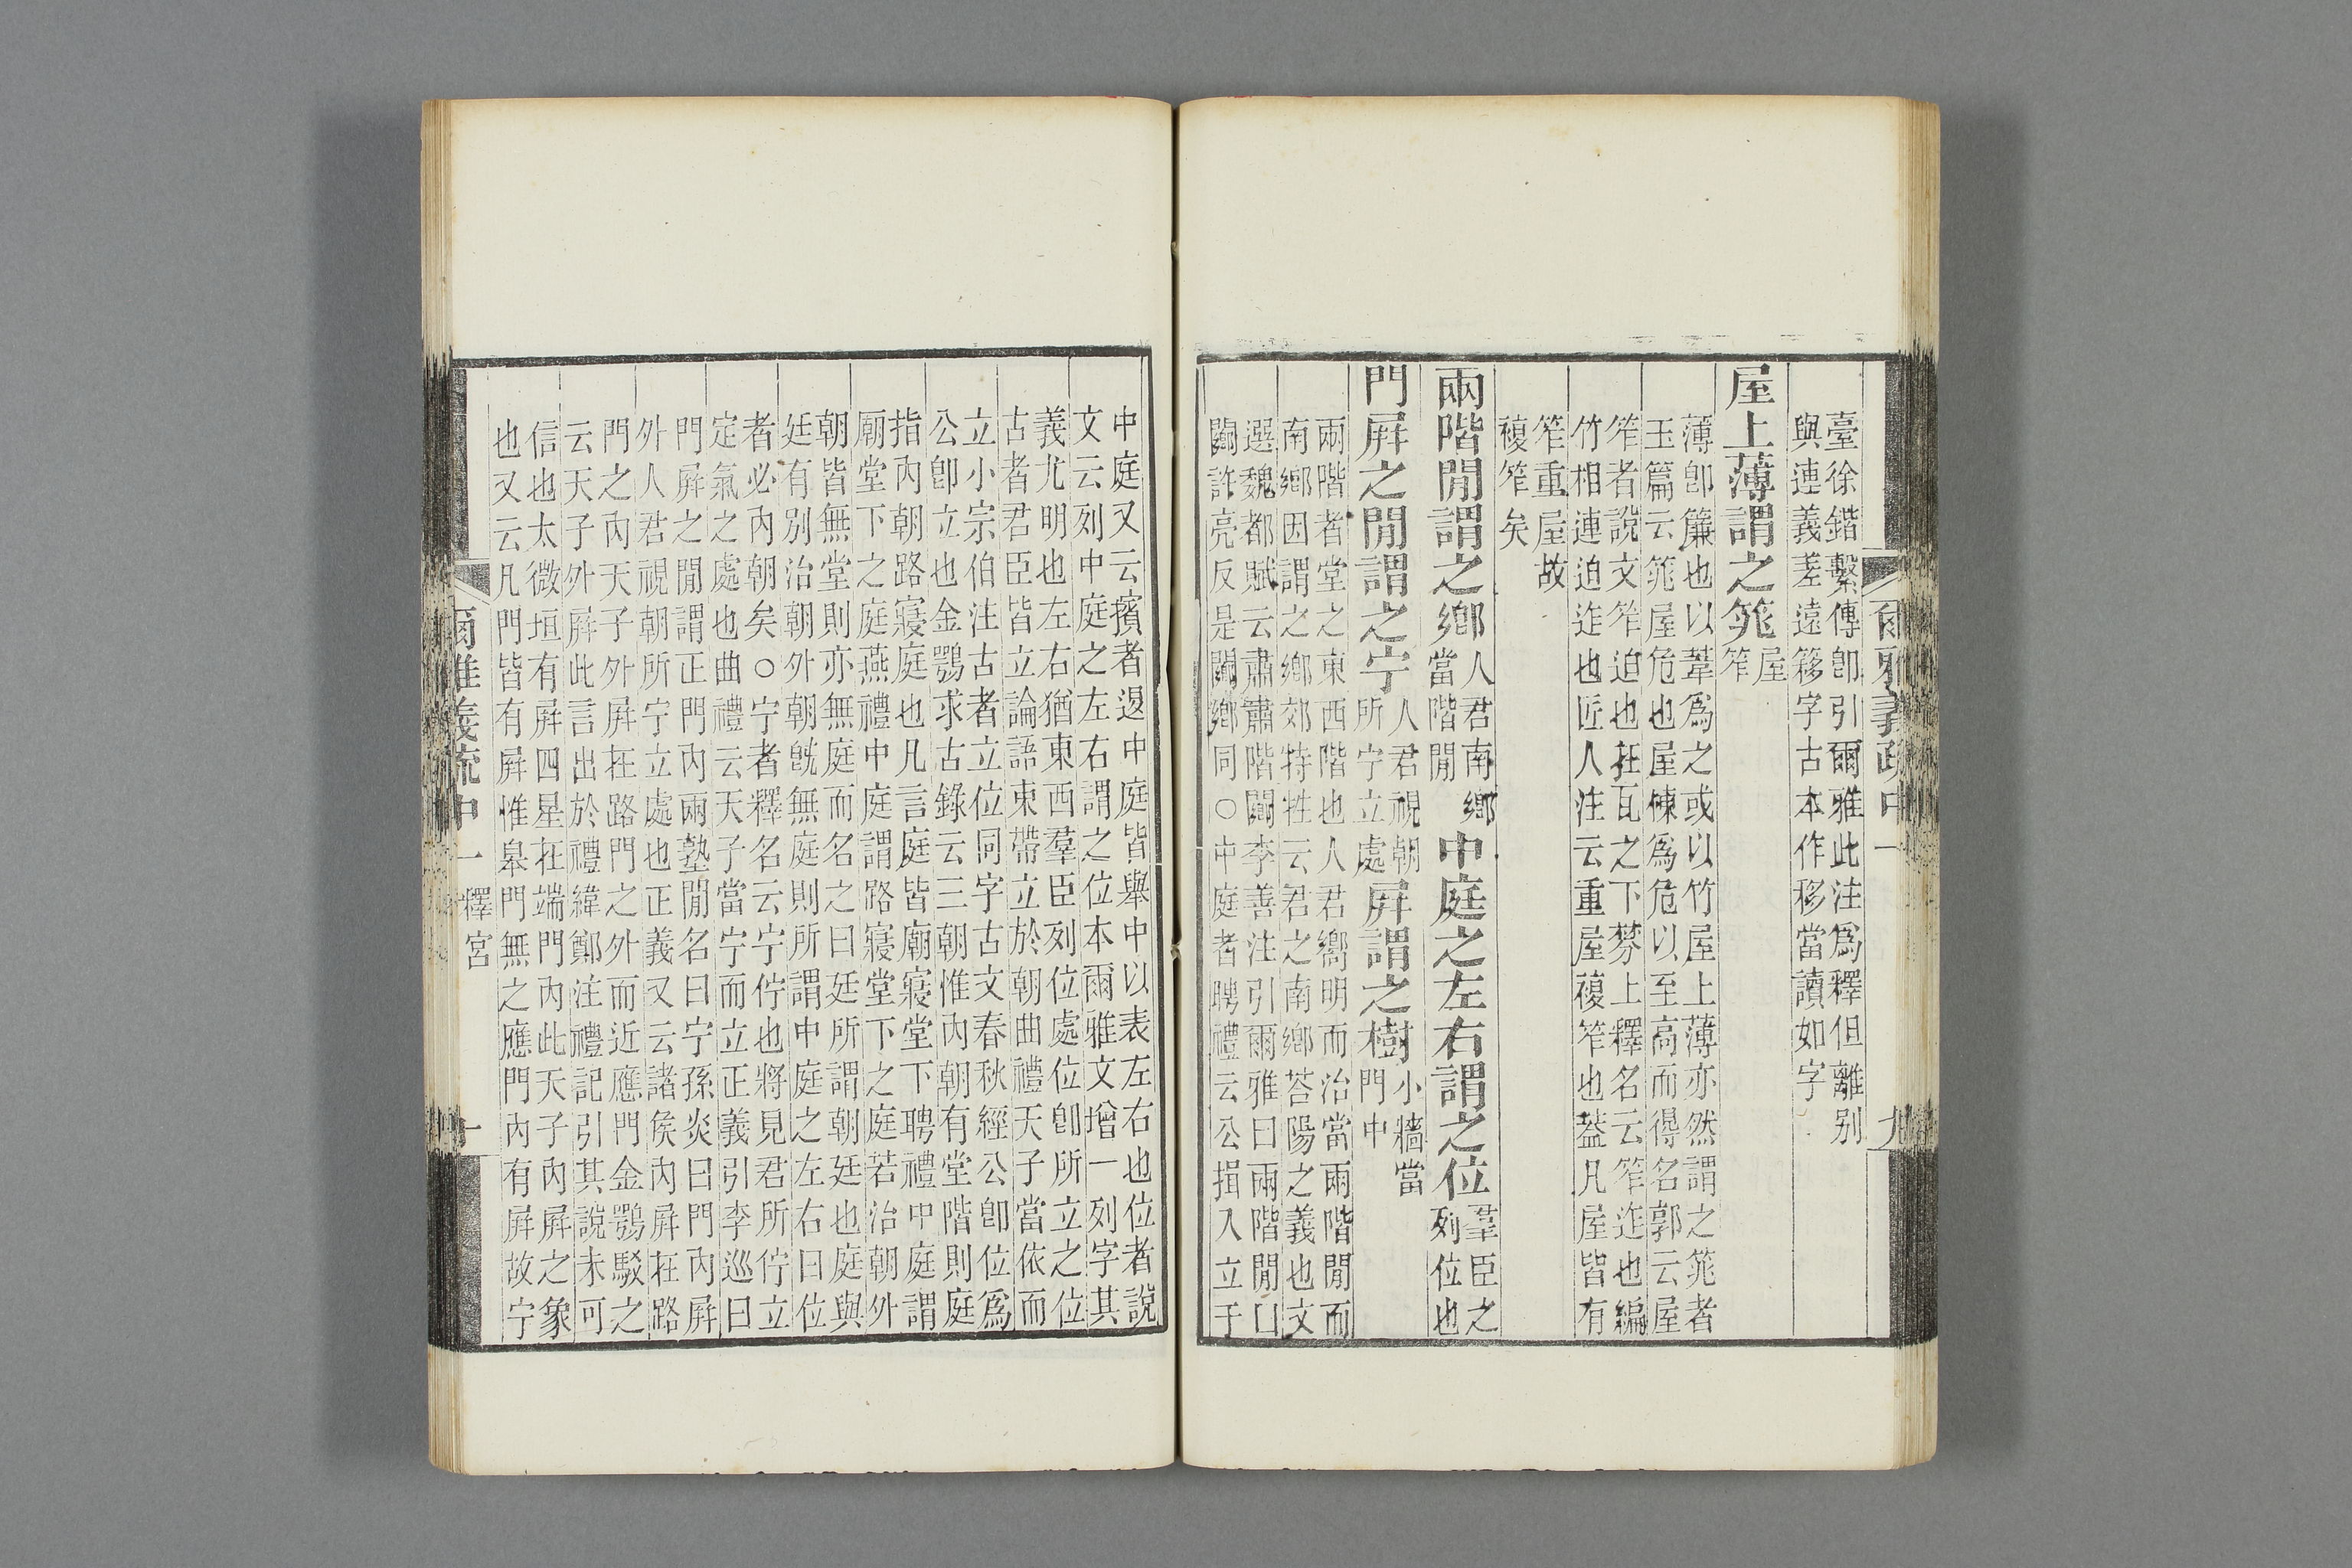 爾雅義疏中一
九
臺徐鍇繫傳卽引爾雅此注爲釋但離別
與連義差遠簃字古本作移當讀如字
屋上薄謂之筄屋
笮
薄卽簾也以葦爲之或以竹屋上薄亦然謂之筄者
玉篇云筄屋危也屋棟爲危以至高而得名郭云屋
笮者說文笮迫也在瓦之下棼上釋名云笮迮也編
竹相連迫迮也匠人注云重屋複笮也葢凡屋皆有
笮重屋故
複笮矣
兩階閒謂之鄉人君南鄉
當階閒
中庭之左右謂之位羣臣之
列位也
門屛之閒謂之宁人君視朝
所宁立處
屛謂之樹小牆當
門中
兩階者堂之東西階也人君嚮明而治當兩階閒而
南鄉因謂之鄉郊特牲云君之南鄉荅陽之義也文
選魏都賦云肅肅階𨶲李善注引爾雅曰兩階閒曰
𨶲許亮反是𨶲鄉同○中庭者聘禮云公揖入立于
中庭又云擯者退中庭皆舉中以表左右也位者說
文云列中庭之左右謂之位本爾雅文增一列字其
義尤明也左右猶東西羣臣列位處位卽所立之位
古者君臣皆立論語束帶立於朝曲禮天子當依而
立小宗伯注古者立位同字古文春秋經公卽位爲
公卽立也金鶚求古錄云三朝惟內朝有堂階則庭
指內朝路寢庭也凡言庭皆廟寢堂下聘禮中庭謂
廟堂下之庭燕禮中庭謂路寢堂下之庭若治朝外
朝皆無堂則亦無庭而名之曰廷所謂朝廷也庭與
廷有別治朝外朝旣無庭則所謂中庭之左右曰位
者必內朝矣○宁者釋名云宁佇也將見君所佇立
定氣之處也曲禮云天子當宁而立正義引李巡曰
門屛之閒謂正門內兩塾閒名曰宁孫炎曰門內屛
外人君視朝所宁立處也正義又云諸侯內屛在路
門之內天子外屛在路門之外而近應門金鶚駁之
云天子外屛此言出於禮緯鄭注禮記引其說未可
信也太微垣有屛四星在端門內此天子內屛之象
也又云凡門皆有屛惟皋門無之應門內有屛故宁
爾雅義疏中一
釋宮
十